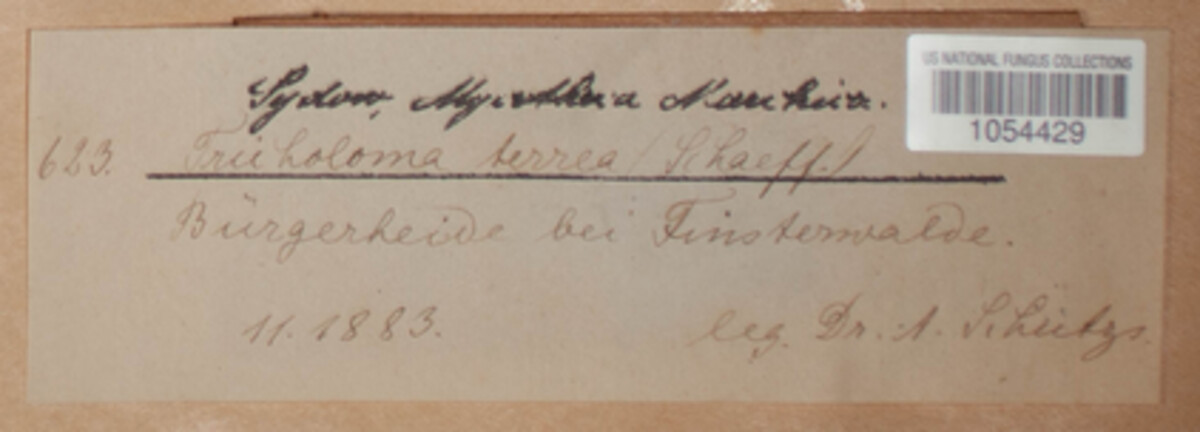 US NATIONAL FUNGUS COLLECTIONS
1054429
Sydow, Mycotheca Marchica.
623. Tricholoma terrea (Schaeff.)
Bürgerheide bei Finsterwalde.
11. 1883. leg. Dr. A.